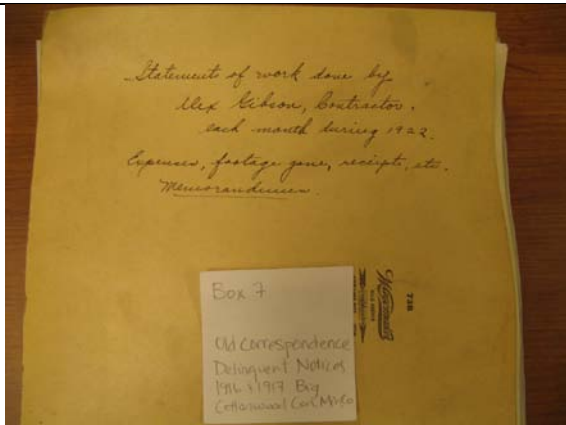 Statements of work done by
Alex Gibson, Contractor.
each month during 1922.
Expenses, footage gone, receipts, etc.
Memorandumen.
Box 7
Old Correspondence
Delinquent Notices
1916 & 1917 Big
Cottonwood Con. Min Co
728